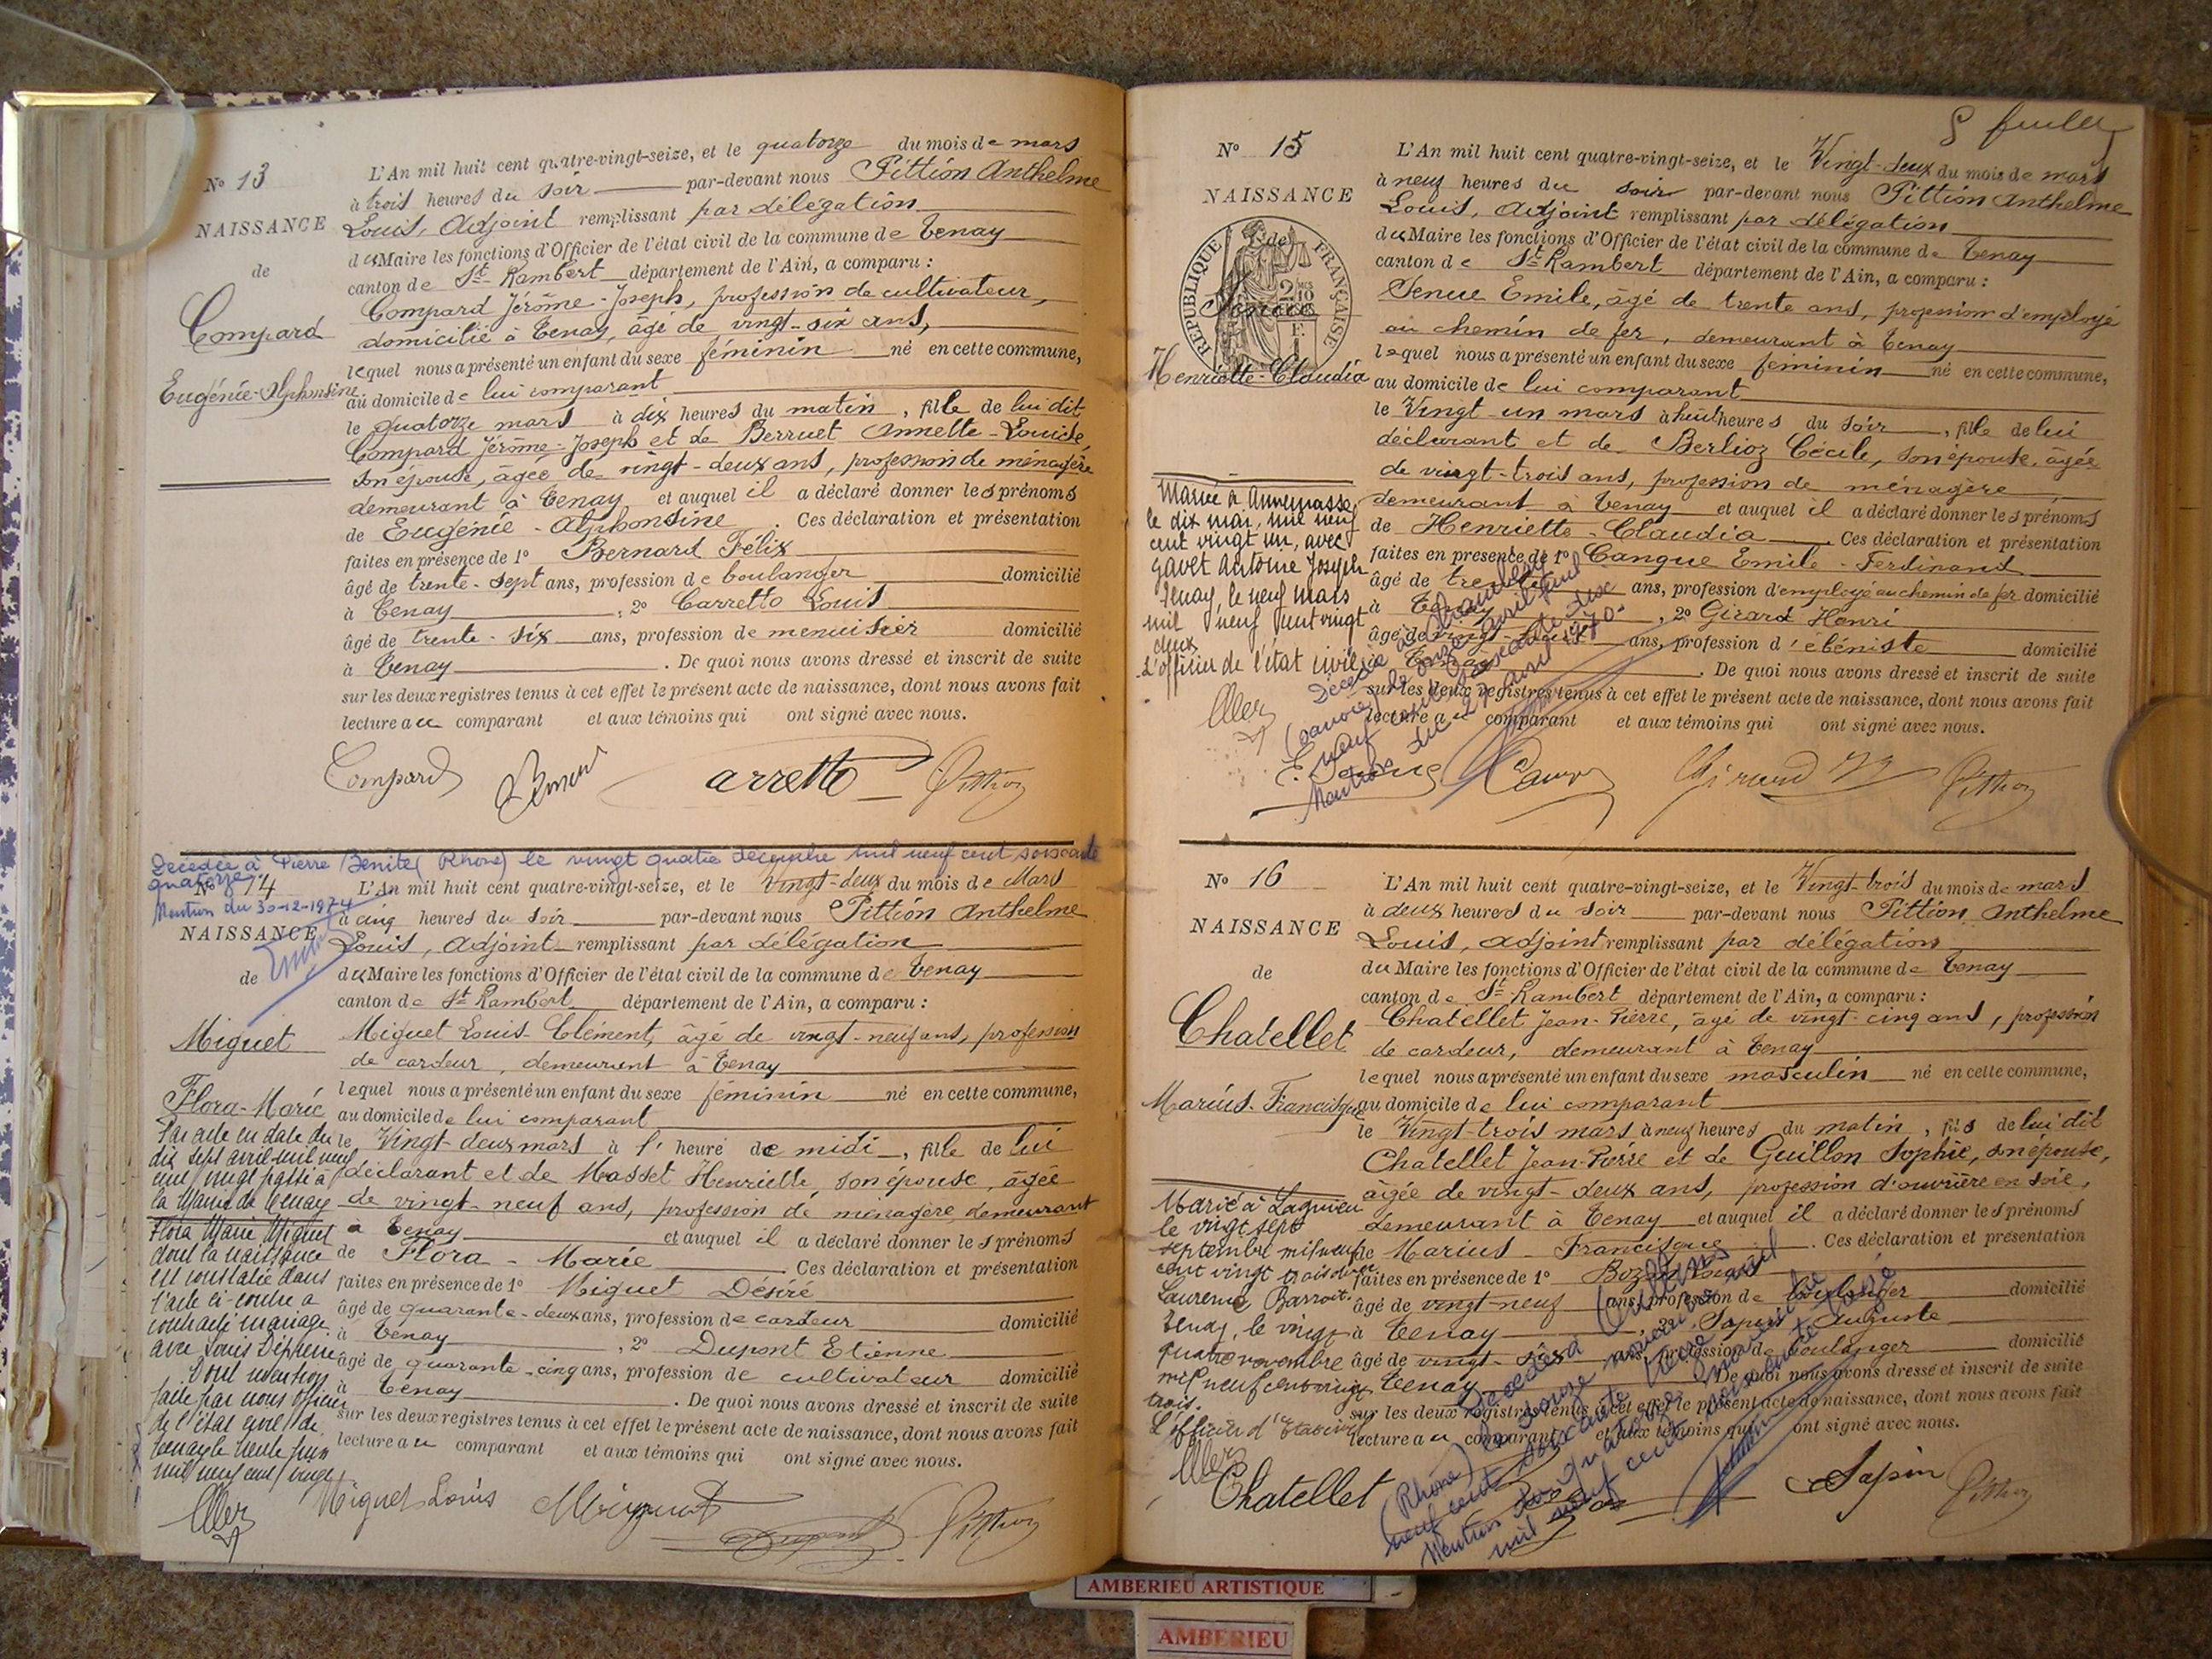 N° 13
NAISSANCE
de
Compard
Eugénie-Alphonsine
L'An mil huit cent quatre-vingt-seize, et le quatorze du mois de mars
à trois heures du soir par-devant nous Pittion Anthelme
Louis, Adjoint remplissant par délégation
du Maire les fonctions d'Officier de l'état civil de la commune de Tenay
canton de St Rambert département de l'Ain, a comparu :
Compard Jérôme-Joseph, profession de cultivateur,
domicilié à Tenay, âgé de vingt-six ans,
lequel nous a présenté un enfant du sexe féminin né en cette commune,
au domicile de lui comparant
le quatorze mars à dix heures du matin, fille de lui dit
Compard Jérôme-Joseph et de Berruet Annette-Louise,
son épouse, âgée de vingt-deux ans, profession de ménagère
demeurant à Tenay et auquel il a déclaré donner les prénoms
de Eugénie-Alphonsine. Ces déclaration et présentation
faites en présence de 1° Bernard Félix
âgé de trente-sept ans, profession de boulanger domicilié
à Tenay, 2° Carretto Louis
âgé de trente-six ans, profession de menuisier domicilié
à Tenay. De quoi nous avons dressé et inscrit de suite
sur les deux registres tenus à cet effet le présent acte de naissance, dont nous avons fait
lecture au comparant et aux témoins qui ont signé avec nous.
Compard arretto Pittion
Decedée à Pierre Bénite (Rhône) le vingt quatre décembre mil neuf cent soixante
quatorze.
Mention du 30-12-1974
N° 14
NAISSANCE
de
Miguet
Flora-Marie
L'An mil huit cent quatre-vingt-seize, et le Vingt-deux du mois de Mars
à cinq heures du soir par-devant nous Pittion Anthelme
Louis, adjoint remplissant par délégation
du Maire les fonctions d'Officier de l'état civil de la commune de Tenay
canton de St Rambert département de l'Ain, a comparu :
Miguet Louis-Clément, âgé de vingt-neuf ans, profession
de cardeur, demeurant à Tenay
lequel nous a présenté un enfant du sexe féminin né en cette commune,
au domicile de lui comparant
le Vingt-deux mars à l'heure de midi, fille de lui
déclarant et de Masset Henriette, son épouse, âgée
de vingt-neuf ans, profession de ménagère, demeurant
à Tenay et auquel il a déclaré donner les prénoms
de Flora-Marie. Ces déclaration et présentation
faites en présence de 1° Miguet Désiré
âgé de quarante-deux ans, profession de cardeur domicilié
à Tenay, 2° Dupont Etienne
âgé de quarante-cinq ans, profession de cultivateur domicilié
à Tenay. De quoi nous avons dressé et inscrit de suite
sur les deux registres tenus à cet effet le présent acte de naissance, dont nous avons fait
lecture au comparant et aux témoins qui ont signé avec nous.
Par acte en date du
dix sept avril mil neuf
cent vingt passé à
la Mairie de Tenay
Flora Marie Miguet
dont la naissance
est constatée dans
l'acte ci-contre a
contracté mariage
avec Louis
Dont mention
faite par nous officier
de l'état civil de
Tenay le trente juin
mil neuf cent vingt
Miguet Louis Miguet Dupont Pittion
8 feuillet
N° 15
NAISSANCE
de
RÉPUBLIQUE FRANÇAISE
Senue
Henriette-Claudia
L'An mil huit cent quatre-vingt-seize, et le Vingt-deux du mois de mars
à neuf heures du soir par-devant nous Pittion Anthelme
Louis, Adjoint remplissant par délégation
du Maire les fonctions d'Officier de l'état civil de la commune de Tenay
canton de St Rambert département de l'Ain, a comparu :
Senue Emile, âgé de trente ans, profession d'employé
au chemin de fer, demeurant à Tenay
lequel nous a présenté un enfant du sexe féminin né en cette commune,
au domicile de lui comparant
le Vingt-un mars à huit heures du soir, fille de lui
déclarant et de Berlioz Cécile, son épouse, âgée
de vingt-trois ans, profession de ménagère,
demeurant à Tenay et auquel il a déclaré donner les prénoms
de Henriette-Claudia. Ces déclaration et présentation
faites en présence de 1° Cangue Emile-Ferdinand
âgé de trente ans, profession d'employé au chemin de fer domicilié
à Tenay, 2° Girard Henri
âgé de vingt- ans, profession d'ébéniste domicilié
à Tenay. De quoi nous avons dressé et inscrit de suite
sur les deux registres tenus à cet effet le présent acte de naissance, dont nous avons fait
lecture au comparant et aux témoins qui ont signé avec nous.
Mariée à Annemasse
le dix mai, mil neuf
cent vingt un, avec
Gavet Antoine Joseph
Tenay, le neuf mars
mil neuf cent vingt
deux
L'officier de l'état civil
Décédée à
(Savoie) le onze avril mil
neuf cent soixante dix
Mention du 27 avril 1970
E. Senue Girard Pittion
N° 16
NAISSANCE
de
Chatellet
Marius-Francisque
L'An mil huit cent quatre-vingt-seize, et le Vingt-trois du mois de mars
à deux heures du soir par-devant nous Pittion Anthelme
Louis, adjoint remplissant par délégation
du Maire les fonctions d'Officier de l'état civil de la commune de Tenay
canton de St Rambert département de l'Ain, a comparu :
Chatellet Jean-Pierre, âgé de vingt-cinq ans, profession
de cardeur, demeurant à Tenay
lequel nous a présenté un enfant du sexe masculin né en cette commune,
au domicile de lui comparant
le Vingt-trois mars à neuf heures du matin, fils de lui dit
Chatellet Jean-Pierre et de Guillon Sophie, son épouse,
âgée de vingt-deux ans, profession d'ouvrière en soie,
demeurant à Tenay et auquel il a déclaré donner les prénoms
de Marius-Francisque. Ces déclaration et présentation
faites en présence de 1° Bozon
âgé de vingt-neuf ans, profession de boulanger domicilié
à Tenay, 2° Sapin Auguste
âgé de vingt-six ans, profession de boulanger domicilié
à Tenay. De quoi nous avons dressé et inscrit de suite
sur les deux registres tenus à cet effet le présent acte de naissance, dont nous avons fait
lecture au comparant et aux témoins qui ont signé avec nous.
Marié à Lagnieu
le vingt sept
septembre mil neuf
cent vingt trois avec
Laurence Barroit.
Tenay, le vingt
quatre novembre
mil neuf cent vingt
trois.
L'officier d'Etat civil
Décédé à Oullins
(Rhône) le douze mil
neuf cent soixante
Mention du quatorze
mil neuf cent soixante
Chatellet Sapin Pittion
AMBERIEU ARTISTIQUE
AMBERIEU